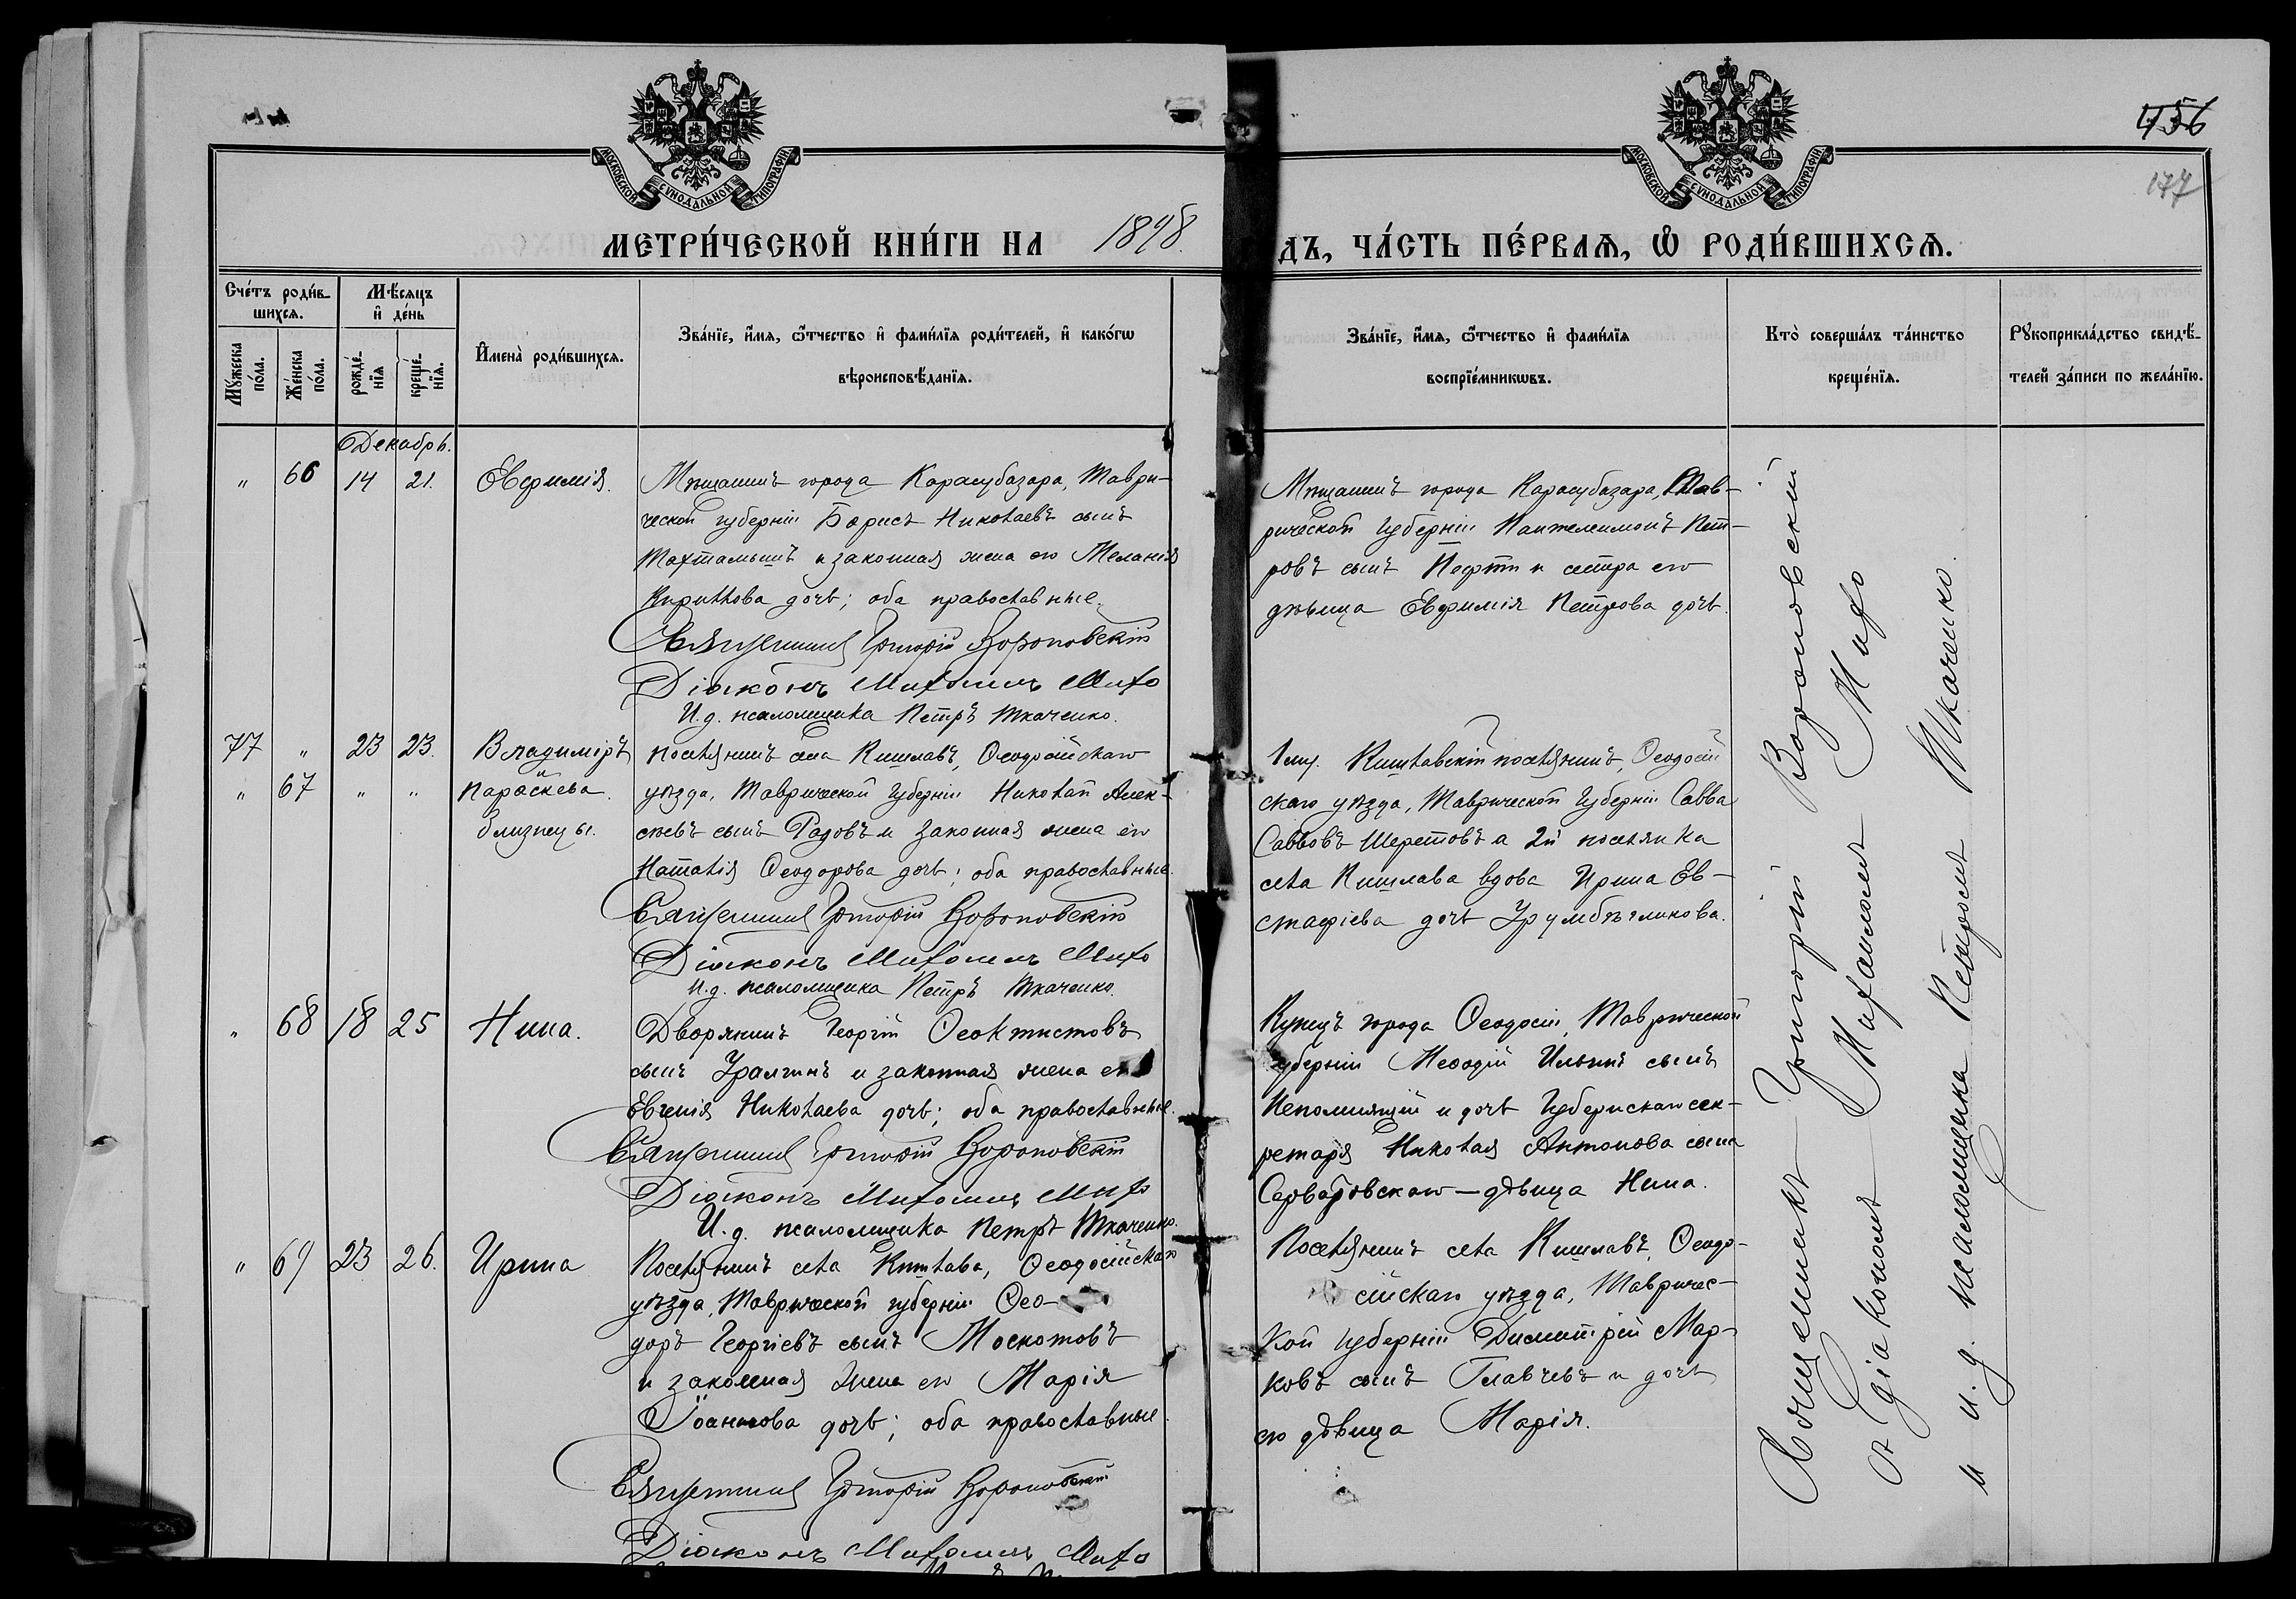 456
177
МОСКОВСКОЙ СѴНОДАЛЬНОЙ ТИПОГРАФІИ
МОСКОВСКОЙ СѴНОДАЛЬНОЙ ТИПОГРАФІИ
МЕТРИ́ЧЕСКОЙ КНИ́ГИ НА 1898.
ДЪ, ЧА́СТЬ ПЕ́РВАѦ, Ѡ РОДИ́ВШИХСѦ.
Сче́тъ роди́в-
шихсѧ.
Мꙋ́жеска по́ла.
Же́нска по́ла.
Мѣ́сѧцъ
и҆ де́нь
рожде́-
нїѧ
креще́-
нїѧ.
И҆мена̀ роди́вшихсѧ.
Зва́нїе, и҆́мѧ, ѻ҆́тчество и҆ фами́лїѧ роди́телей, и҆ како́гѡ
вѣроисповѣ́данїѧ.
Зва́нїе, и҆́мѧ, ѻ҆́тчество и҆ фами́лїѧ
воспрїе́мникѡвъ.
Кто̀ соверша́лъ та́инство
креще́нїѧ.
Рꙋкоприкла́дство свидѣ́-
телей за́писи по жела́нїю.
Декабрь.
" 66 14 21. Евфимія.
Мѣщанинъ города Карасубазара, Таври-
ческой губерніи Борисъ Николаевъ сынъ
Тохтамышъ и законная жена его Меланія
Кириллова дочь; оба православные.
Священникъ Григорій Вороновскій
Діаконъ Михаилъ Михо
И.д. псаломщика Петръ Ткаченко.
Мѣщанинъ города Карасубазара, Тав-
рической губерніи Пантелеимонъ Пет-
ровъ сынъ Пефти и сестра его
дѣвица Евфимія Петрова дочь.
77 " 23 23. Владиміръ
" 67 " " Параскева.
близнецы.
поселянинъ села Кишлавъ, Ѳеодосійскаго
уѣзда, Таврической губерніи Николай Алек-
сѣевъ сынъ Радовъ и законная жена его
Наталія Ѳеодорова дочь; оба православные.
Священникъ Григорій Вороновскій
Діаконъ Михаилъ Михо
И.д. псаломщика Петръ Ткаченко.
Кишлавскій поселянинъ, Ѳеодосій
скаго уѣзда, Таврической губерніи Савва
Саввовъ Шеретовъ а 2й поселянка
села Кишлава вдова Ирина Ев-
стафіева дочь
" 68 18 25 Нина.
Дворянинъ Георгій Ѳеоктистовъ
сынъ и законная жена его
Евгенія Николаева дочь; оба православные.
Священникъ Григорій Вороновскій
Діаконъ Михаилъ Михо
И.д. псаломщика Петръ Ткаченко.
Купецъ города Ѳеодосіи, Таврической
губерніи Меѳодій Ильинъ сынъ
Непомнящій и дочь Губернскаго сек-
ретаря Николая Антонова сына
дѣвица Нина.
" 69 23 26. Ирина
Поселянинъ села Кишлава, Ѳеодосійскаго
уѣзда, Таврической губерніи Ѳео-
доръ Георгіевъ сынъ Москотовъ
и законная жена его Марія
Іоаннова дочь; оба православные.
Священникъ Григорій Вороновскій
Діаконъ Михаилъ Михо
Поселянинъ села Кишлавъ, Ѳеодо-
сійскаго уѣзда, Тавричес-
кой губерніи Димитрій Мар-
ковъ сынъ Главчевъ и дочь
его дѣвица Марія.
Священникъ Григорій Вороновскій
съ діакономъ Михаиломъ Михо
и и.д. псаломщика Петромъ Ткаченко.